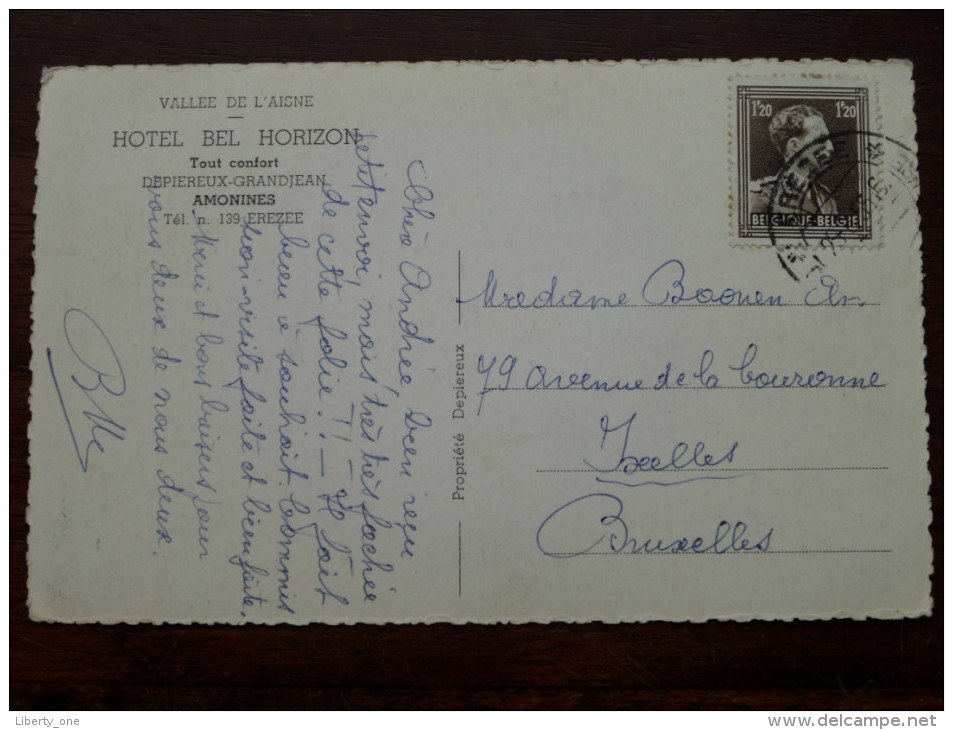 VALLEE DE L'AISNE
HOTEL BEL HORIZON
Tout confort
DEPIEREUX-GRANDJEAN
AMONINES
Tél. n. 139 EREZEE
Chère Andrée, bien reçu
petit envoi, mais très très fachée
de cette folie!! - Il fait
beau à souhait. Commis-
sion-visite faite et bien faite.
Merci et bons baisers pour
vous deux de nous deux.
Propriété Depiereux
1F20 1F20
BELGIQUE-BELGIE
EREZEE
Madame An.
79 avenue de la couronne
Ixelles
Bruxelles
Liberty_one
delcampe.net